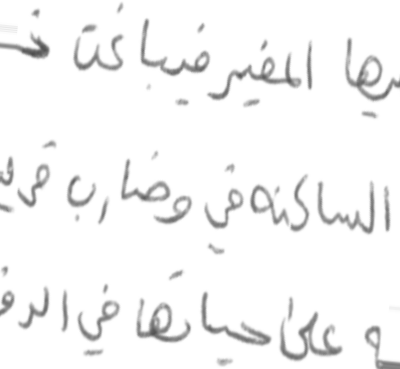 يرها المغير فيباغت
الساكنه في مضارب قريبه
على حياتها في الدف